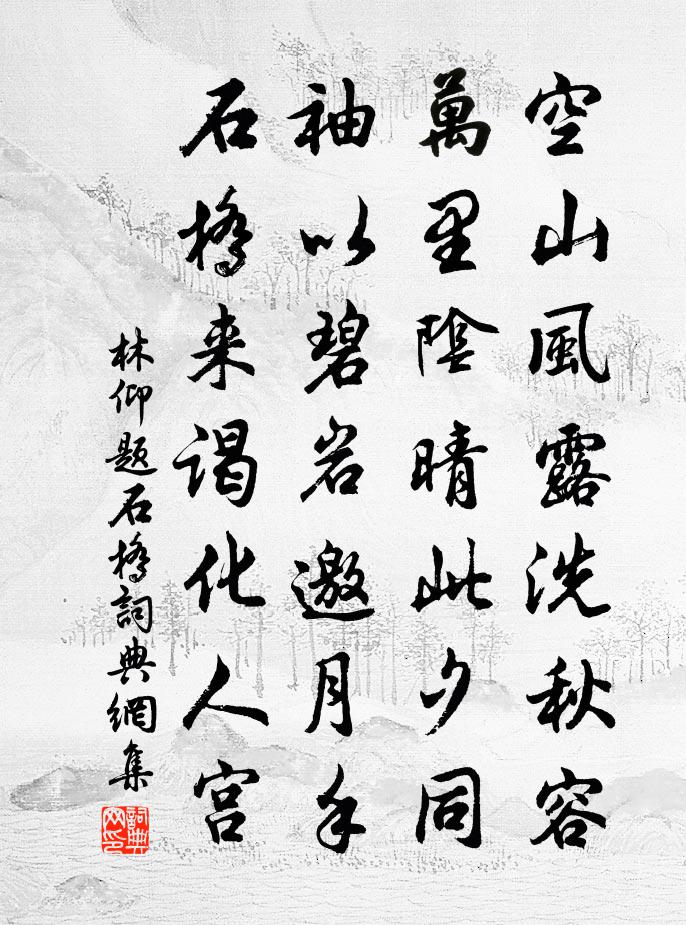 空山風露洗秋容
萬里陰晴此夕同
袖以碧岩邀月手
石橋来謁化人宫
林仰题石橋詞典網集
詞典网印